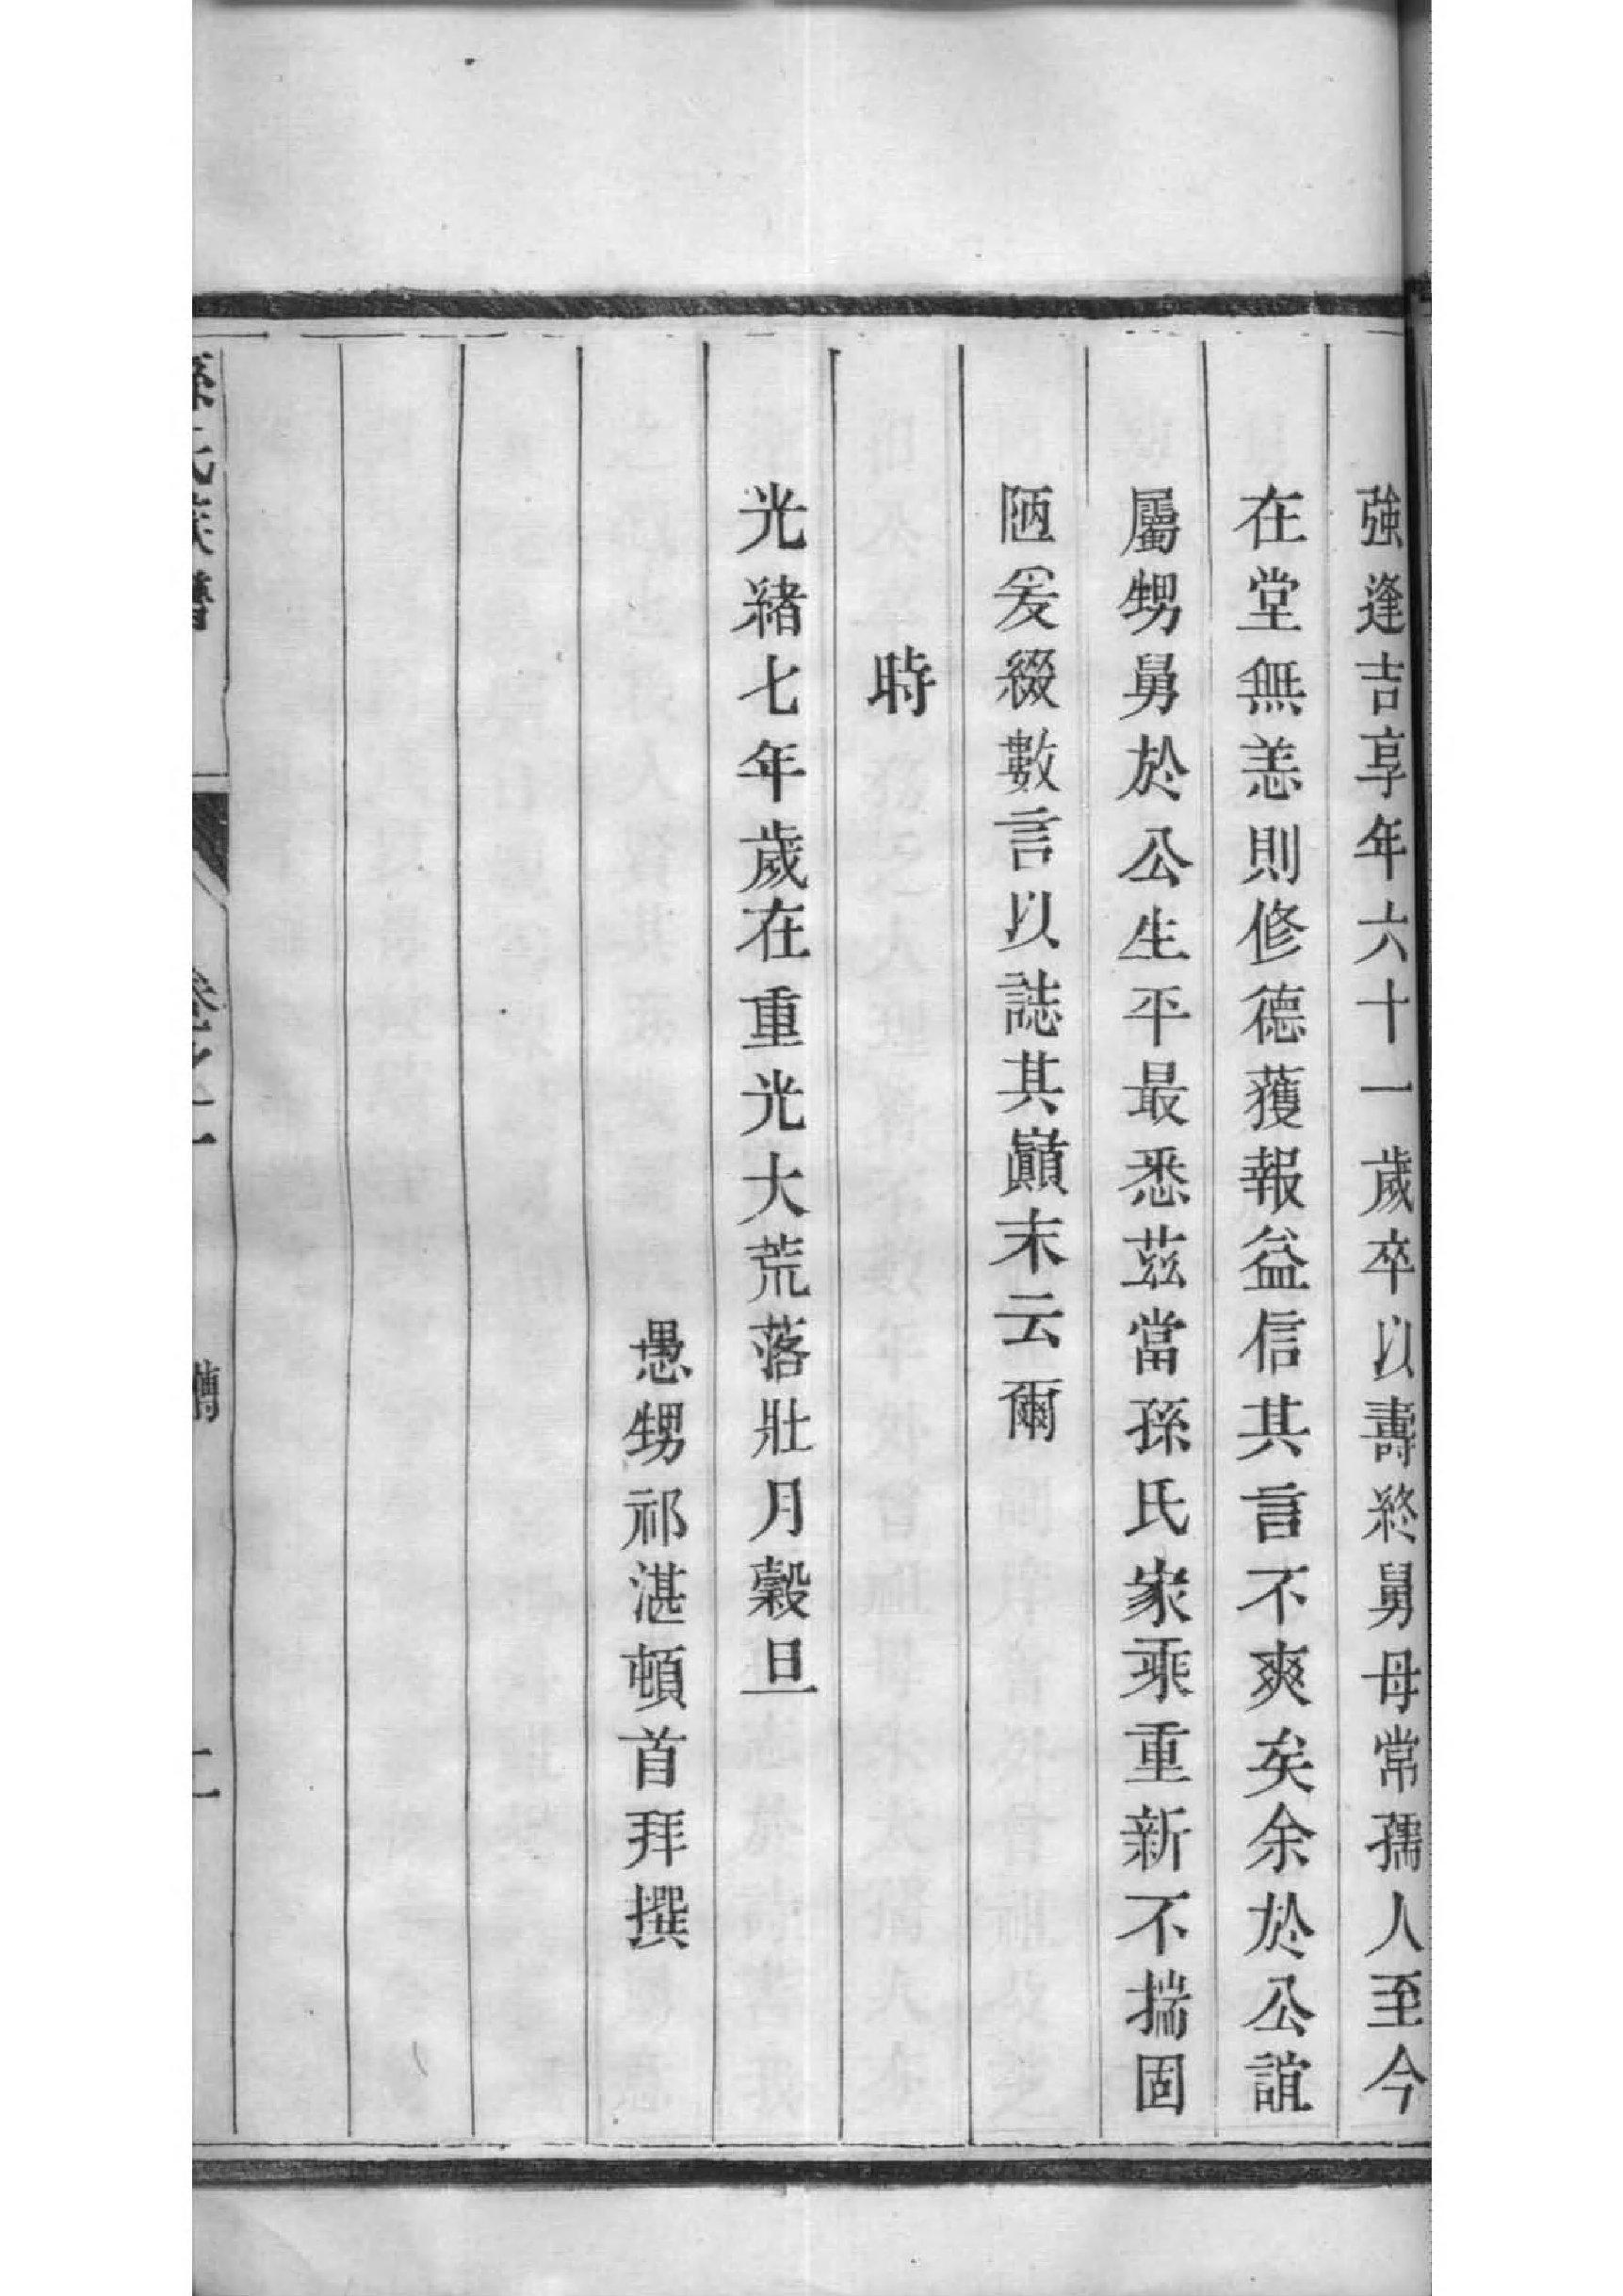 強逢吉享年六十一歲卒以壽終舅母常孺人至今
在堂無恙則修德獲報益信其言不爽矣余於公誼
屬甥舅於公生平最悉茲當孫氏家乘重新不揣固
陋爰綴數言以誌其巔末云爾
時
光緒七年歲在重光大荒落壯月穀旦
愚甥祁湛頓首拜撰
孫氏族譜
卷之一
傳
二